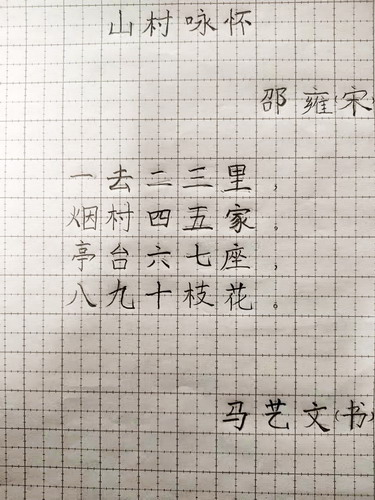 山村咏怀
邵雍(宋)
一去二三里，
烟村四五家。
亭台六七座，
八九十枝花。
马艺文(书)